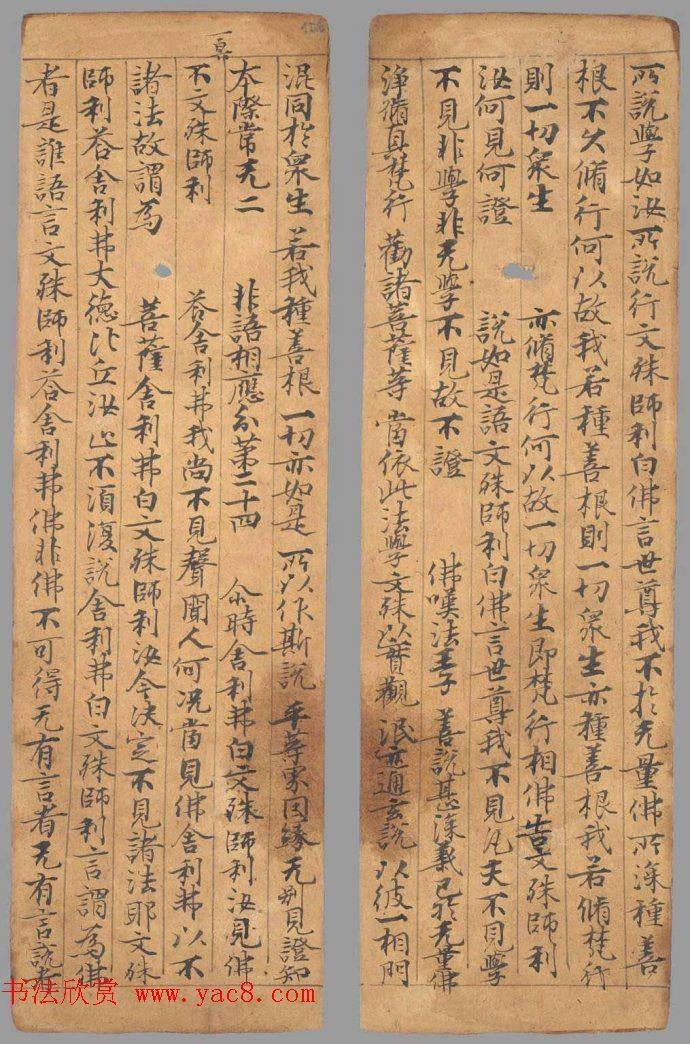 所說學如汝所說行文殊師利白佛言世尊我不於无量佛所深種善
根不久脩行何以故我若種善根則一切衆生亦種善根我若脩梵行
則一切衆生 亦脩梵行何以故一切衆生即梵行相佛告文殊師利
汝何見何證 說如是語文殊師利白佛言世尊我不見凡夫不見學
不見非學非无學不見故不證 佛嘆法王子 善說甚深義已於无量佛
淨脩真梵行 勸諸菩薩等 當依此法學文殊以實觀 泯迹通玄說 以彼一相門
混同於衆生 若我種善根 一切亦如是 所以作斯說 平等衆因緣 无別見證知
本際常无二 非語相應分第二十四 尒時舍利弗白文殊師利汝見佛
不文殊師利 荅舍利弗我尚不見聲聞人何况當見佛舍利弗以不
諸法故謂為 菩薩舍利弗白文殊師利汝今决定不見諸法耶文殊
師利荅舍利弗大德比丘汝止不須復說舍利弗白文殊師利言謂為佛
者是誰語言文殊師利荅舍利弗佛非佛不可得无有言者无有言說者
书法欣赏 www.yac8.com